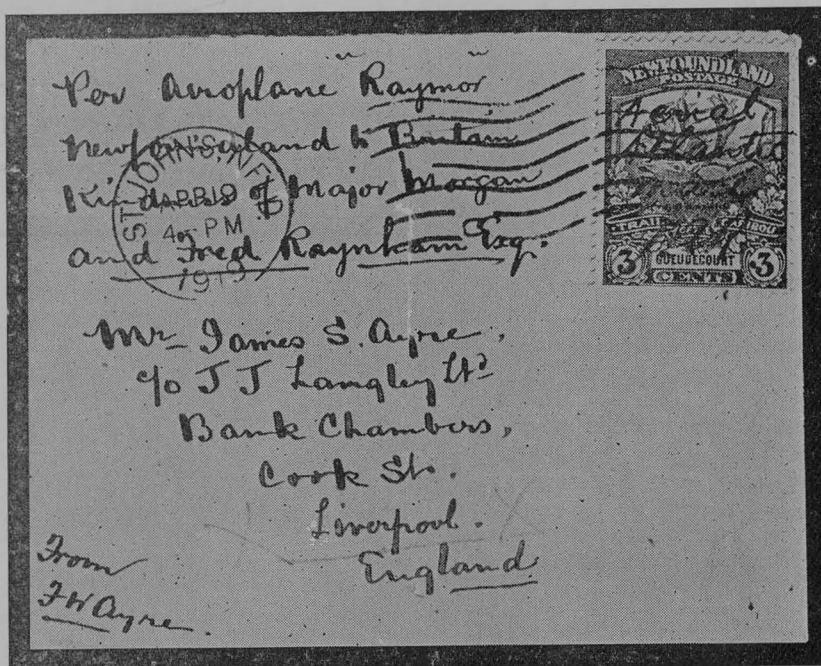 Per Aeroplane "Raymor"
Newfoundland to Britain
Kindness of Major Morgan
and Fred Raynham Esq.
ST. JOHN'S, NF'D
APR 19
4 - PM
1919
NEWFOUNDLAND
POSTAGE
Aerial
Atlantic
Mail
TRAIL OF THE CARIBOU
3 GUEUDECOURT 3
CENTS
Mr James S. Ayre,
c/o J J Langley Ltd
Bank Chambers,
Cook St.
Liverpool.
England
From
F W Ayre.